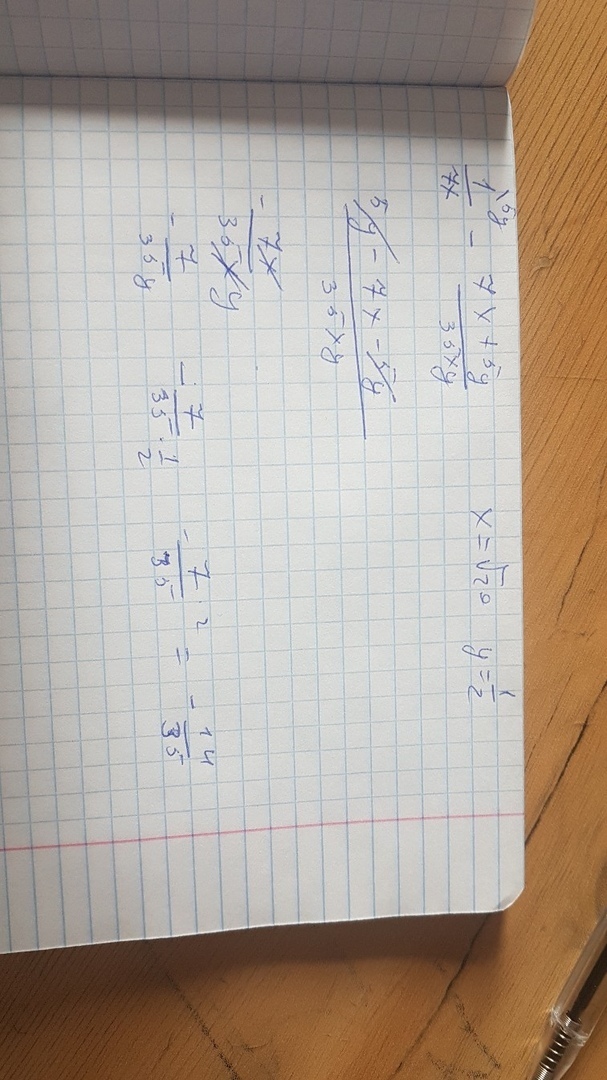 1\5y/7x - 7x+5y/35xy x=√20 y=1/2
5y-7x-5y/35xy
- 7x/35xy
- 7/35y - 7/35·1/2 - 7/35·2 = - 14/35